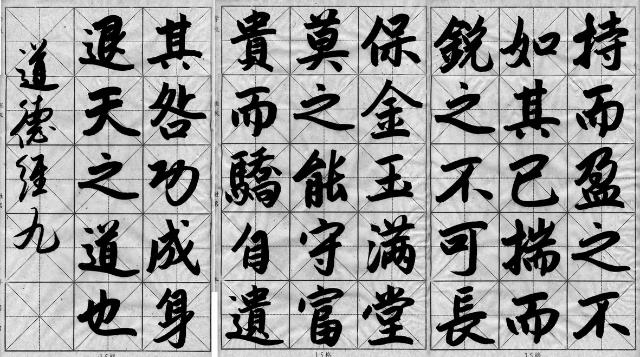 持而盈之不
如其已揣而
銳之不可長
保金玉滿堂
莫之能守富
貴而驕自遺
其咎功成身
退天之道也
道德經九
15格
15格